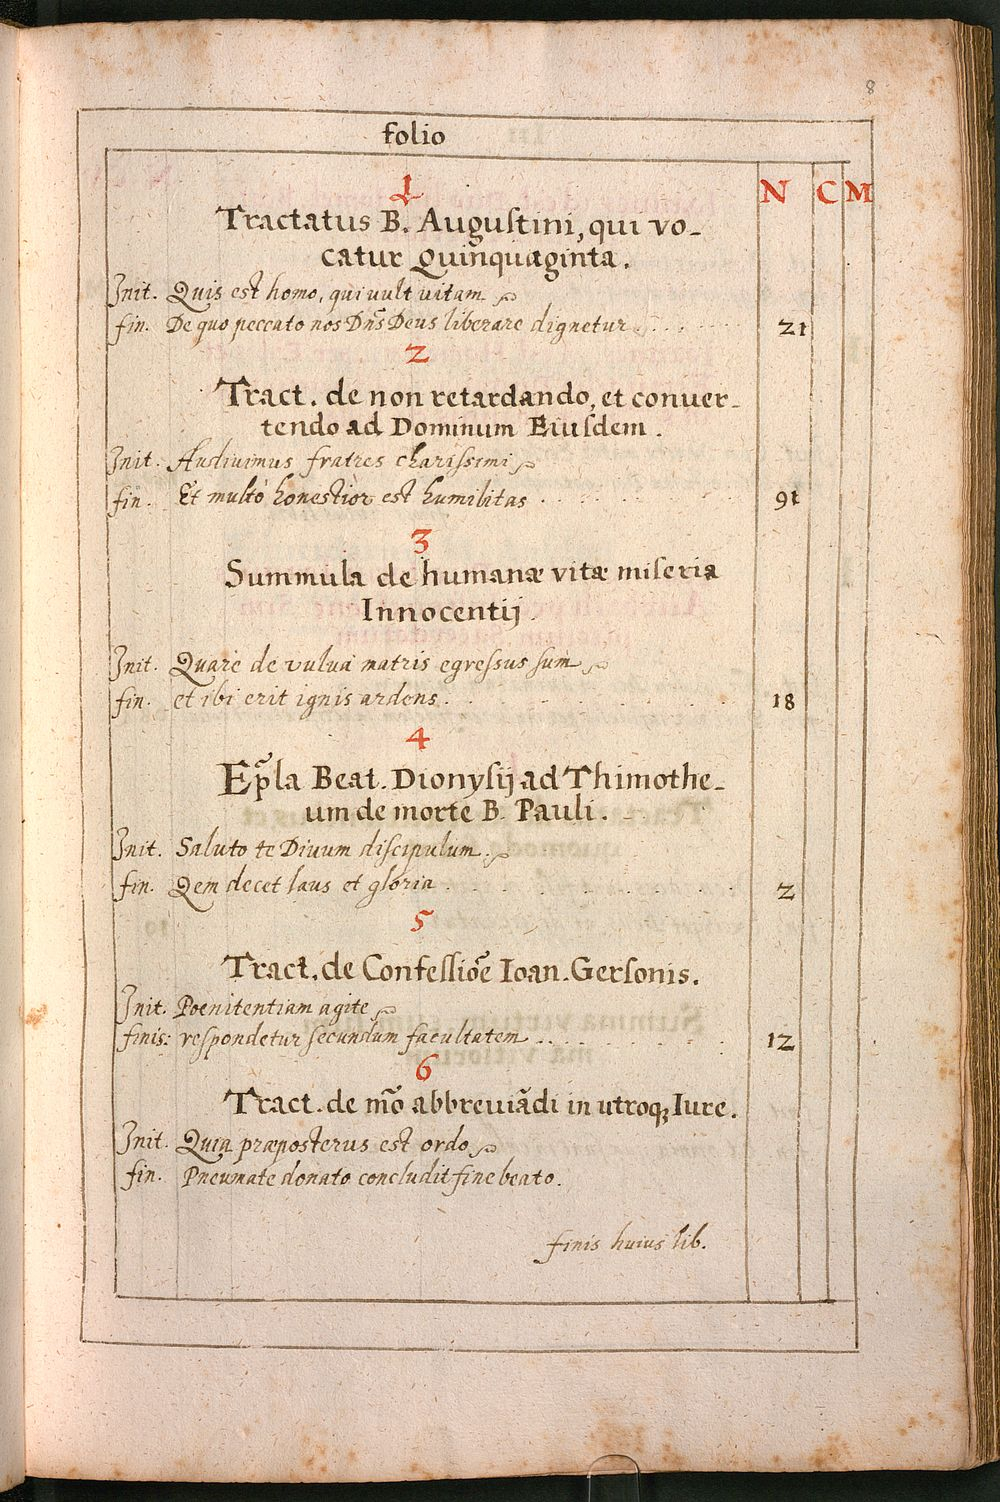 8
folio
N C M
1
Tractatus B. Auguſtini, qui vo-
catur Quinquaginta.
Init. Quis est homo, qui vult vitam
fin. De quo peccato nos Dn̄s Deus liberare dignetur 21
2
Tract. de non retardando, et conuer-
tendo ad Dominum Eiuſdem.
Init. Audiuimus fratres chariſsimi
fin. Et multò honestior est humilitas 91
3
Summula de humanæ vitæ miſeria
Innocentij.
Init. Quare de vulua matris egreſsus ſum
fin. et ibi erit ignis ardens. 18
4
Ep̃la Beat. Dionyſij ad Thimothe-
um de morte B. Pauli.
Init. Saluto te Diuum diſcipulum.
fin. Qem decet laus et gloria 2
5
Tract. de Confeſſiōe Ioan. Gerſonis.
Init. Poenitentiam agite
finis: reſpondetur ſecundum facultatem 12
6
Tract. de mō abbreuiādi in utroq; Iure.
Init. Quia præposterus est ordo
fin. Pneumate donato concludit fine beato.
finis huius lib.